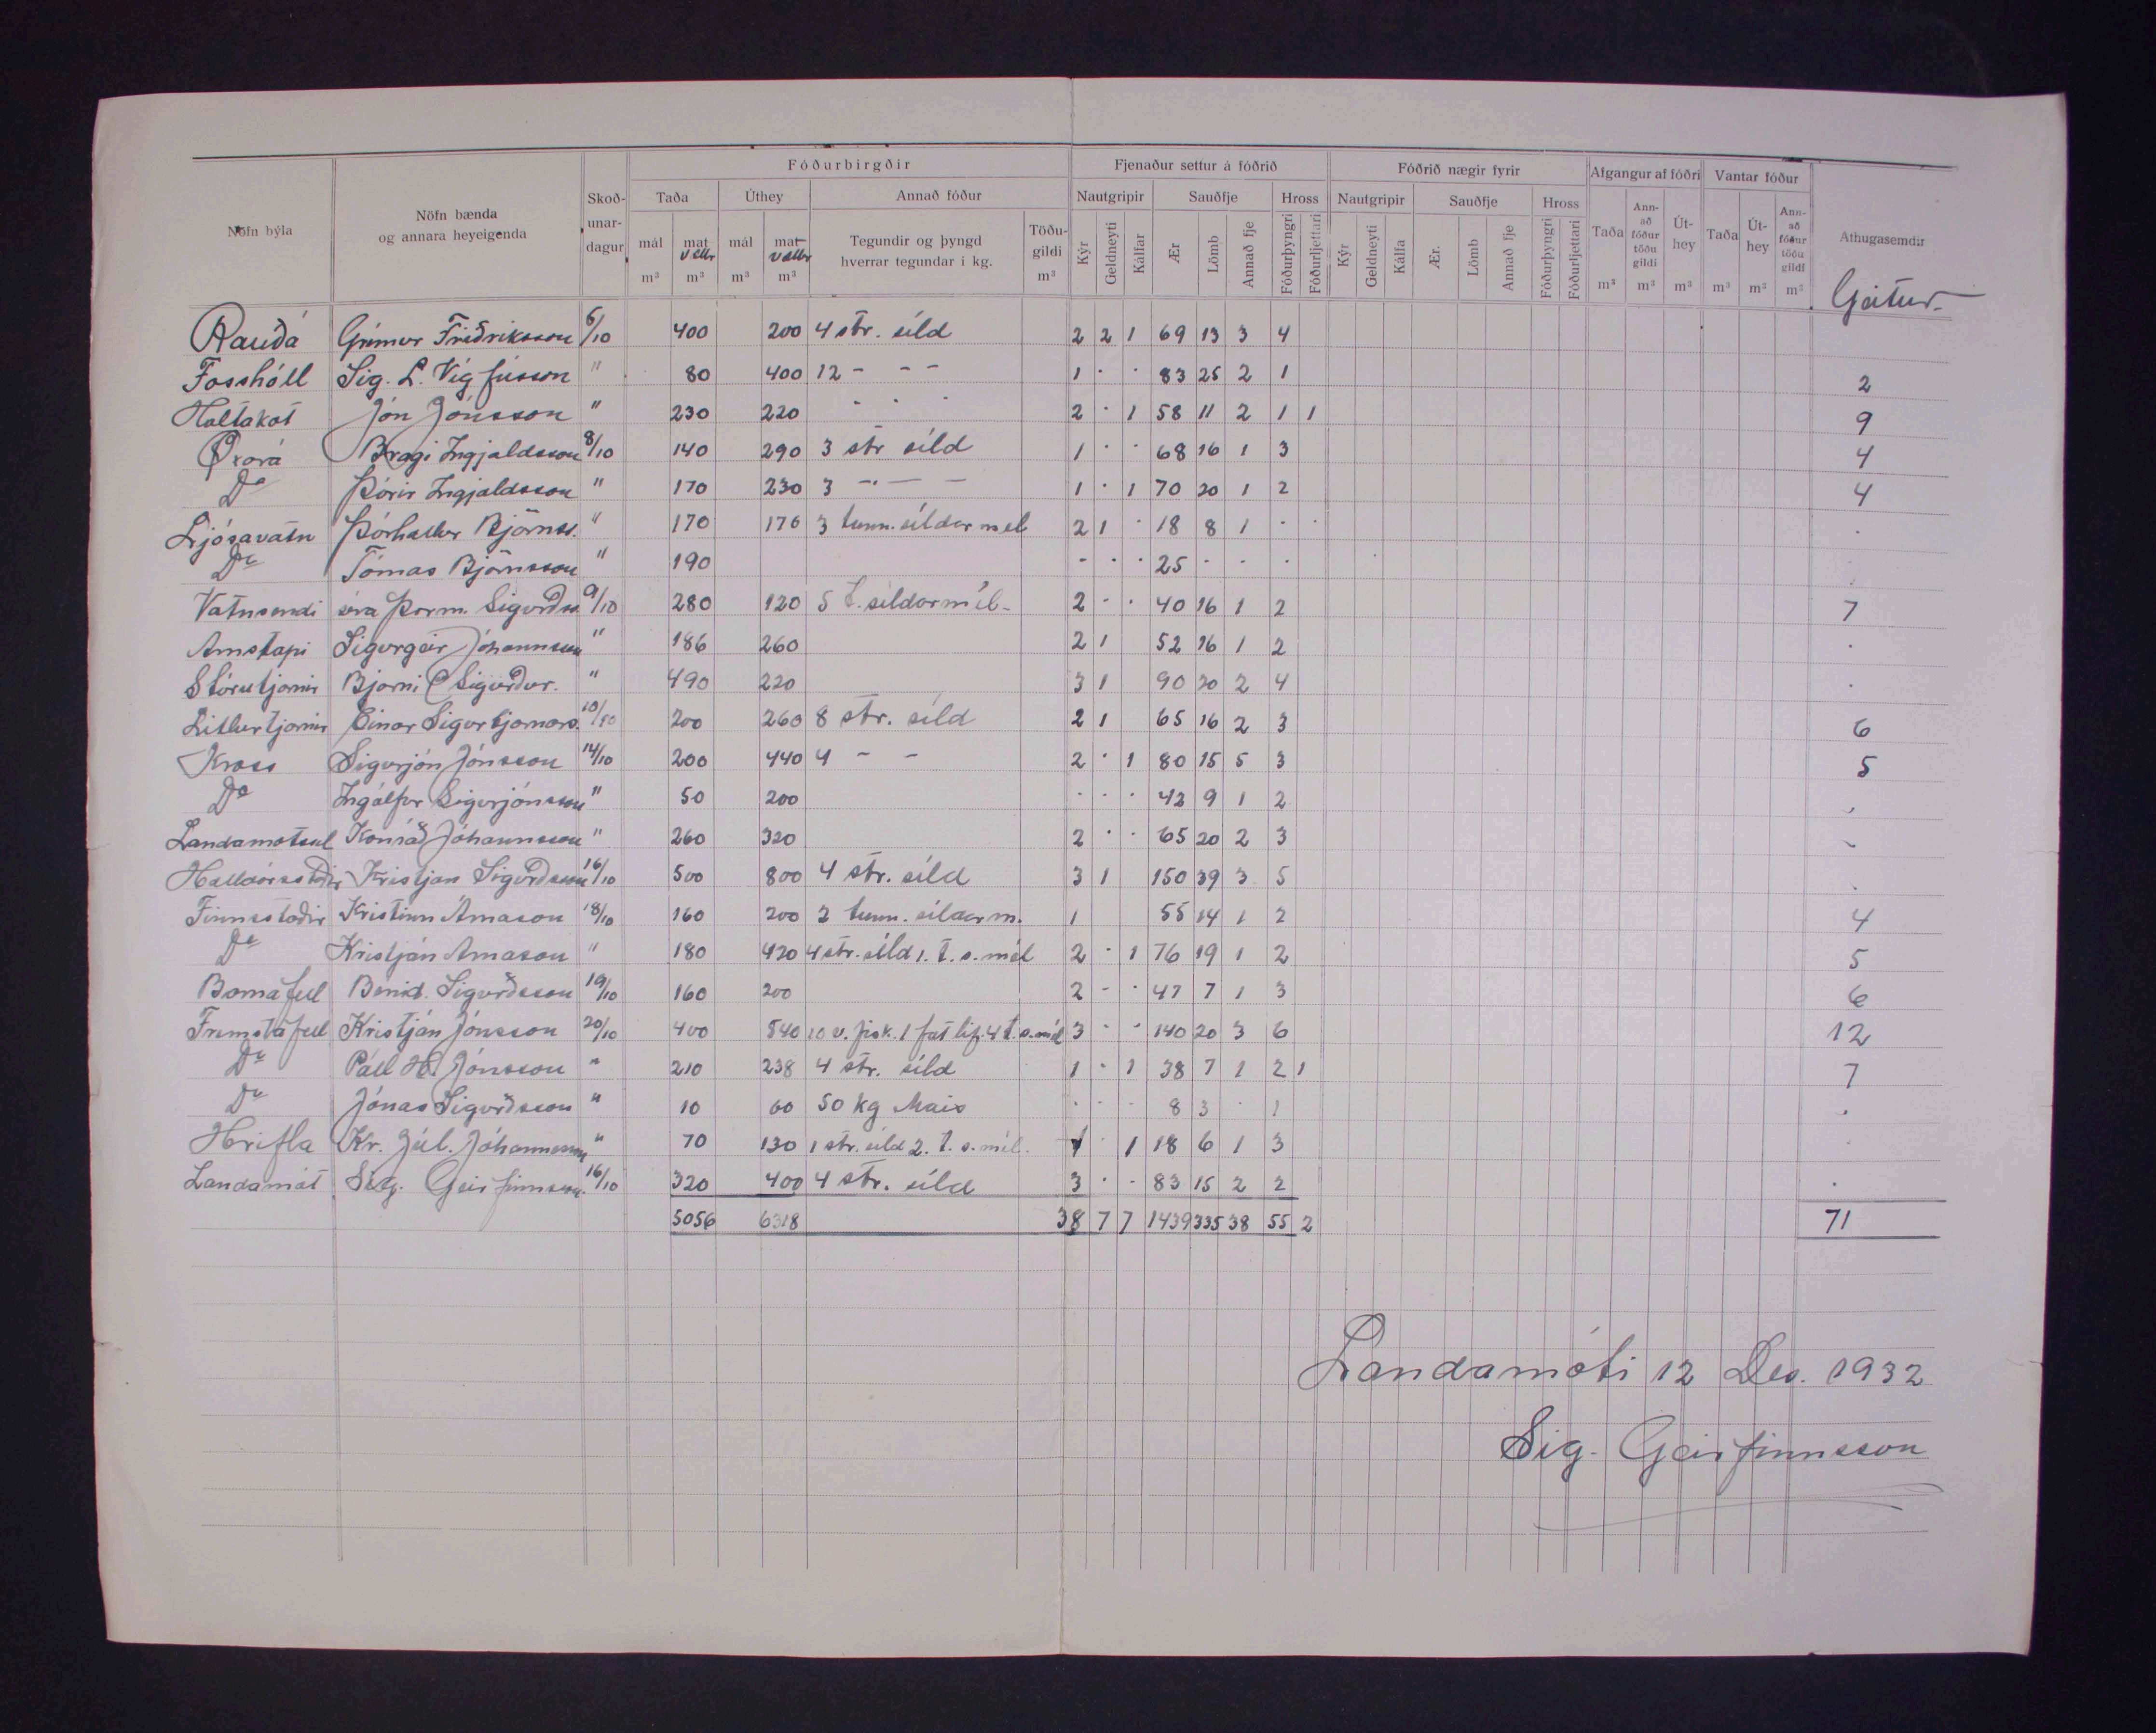 Nöfn býla | Nöfn bænda og annara heyeigenda | Skoðunardagur | Fóðurbirgðir | Fjenaður settur á fóðrið | Fóðrið nægir fyrir | Afgangur af fóðri | Vantar fóður | Athugasemdir
Taða | Úthey | Annað fóður | Nautgripir | Sauðfje | Hross | Nautgripir | Sauðfje | Hross | Taða m³ | Annað fóður töðu gildi m³ | Úthey m³ | Taða m³ | Úthey m³ | Annað fóður töðu gildi m³
mál m³ | mat vallr m³ | mál m³ | mat vallr m³ | Tegundir og þyngd hverrar tegundar í kg. | Töðugildi m³ | Kýr | Geldneyti | Kálfar | Ær | Lömb | Annað fje | Fóðurþyngri | Fóðurljettari | Kýr | Geldneyti | Kálfa | Ær. | Lömb | Annað fje | Fóðurþyngri | Fóðurljettari | Geitur
Rauðá Grímur Friðriksson 6/10 400 200 4 str. síld 2 2 1 69 13 3 4
Fosshóll Sig. L. Vigfússon " 80 400 12 - - - 1 · · 83 25 2 1 2
Holtakot Jón Jónsson " 230 220 · · · 2 · 1 58 11 2 1 1 9
Öxará Bragi Ingjaldsson 8/10 140 290 3 str síld 1 · · 68 16 1 3 4
Do Þórir Ingjaldsson " 170 230 3 -·- - 1 · 1 70 20 1 2 4
Ljósavatn Þórhallur Björnss. " 170 176 3 tunn. síldarmél 2 1 · 18 8 1 · · ·
Do Tómas Björnsson " 190 - · · 25 · · · ·
Vatnsendi séra Þorm. Sigurðss. 9/10 280 120 5 t. síldarmél - 2 - · 40 16 1 2 7
Arnstapi Sigurgeir Jóhannsson " 186 260 2 1 52 16 1 2 ·
Stórutjornir Bjarni Sigurður. " 490 220 3 1 90 20 2 4 ·
Litlutjornir Einar Sigurbjornars. 10/10 200 260 8 str. síld 2 1 65 16 2 3 6
Kross Sigurjón Jónsson 14/10 200 440 4 - - 2 · 1 80 15 5 3 5
Do Ingólfur Sigurjónsson " 50 200 · · · 42 9 1 2
Landamotsel Konráð Jóhannsson " 260 320 2 · · 65 20 2 3
Halldórsstaðir Kristjan Sigurðsson 16/10 500 800 4 str. síld 3 1 150 39 3 5 ·
Finnsstaðir Kristinn Árnason 18/10 160 200 2 tunn. síldarm. 1 55 14 1 2 4
Do Kristján Árnason " 180 420 4 str. síld 1. t. s. mél 2 · 1 76 19 1 2 5
Barnafell Benid. Sigurðsson 19/10 160 200 2 - · 47 7 1 3 6
Fremstafell Kristján Jónsson 20/10 400 540 10 v. fisk. 1 fat lif. 4 t. s. mél 3 · · 140 20 3 6 12
Do Páll H. Jónsson " 210 238 4 str. síld 1 · 1 38 7 1 2 1 7
Do Jónas Sigurðsson " 10 60 50 kg Mais · · · 8 3 · 1 ·
Hrifla Kr. Júl. Jóhannesson " 70 130 1 str. síld 2. t. s. mél. 1 · 1 18 6 1 3 ·
Landamót Sig. Geirfinnsson. 16/10 320 400 4 str. síld 3 · - 83 15 2 2 ·
5056 6318 38 7 7 1439 335 38 55 2 71
Landamóti 12 Des. 1932
Sig. Geirfinnsson